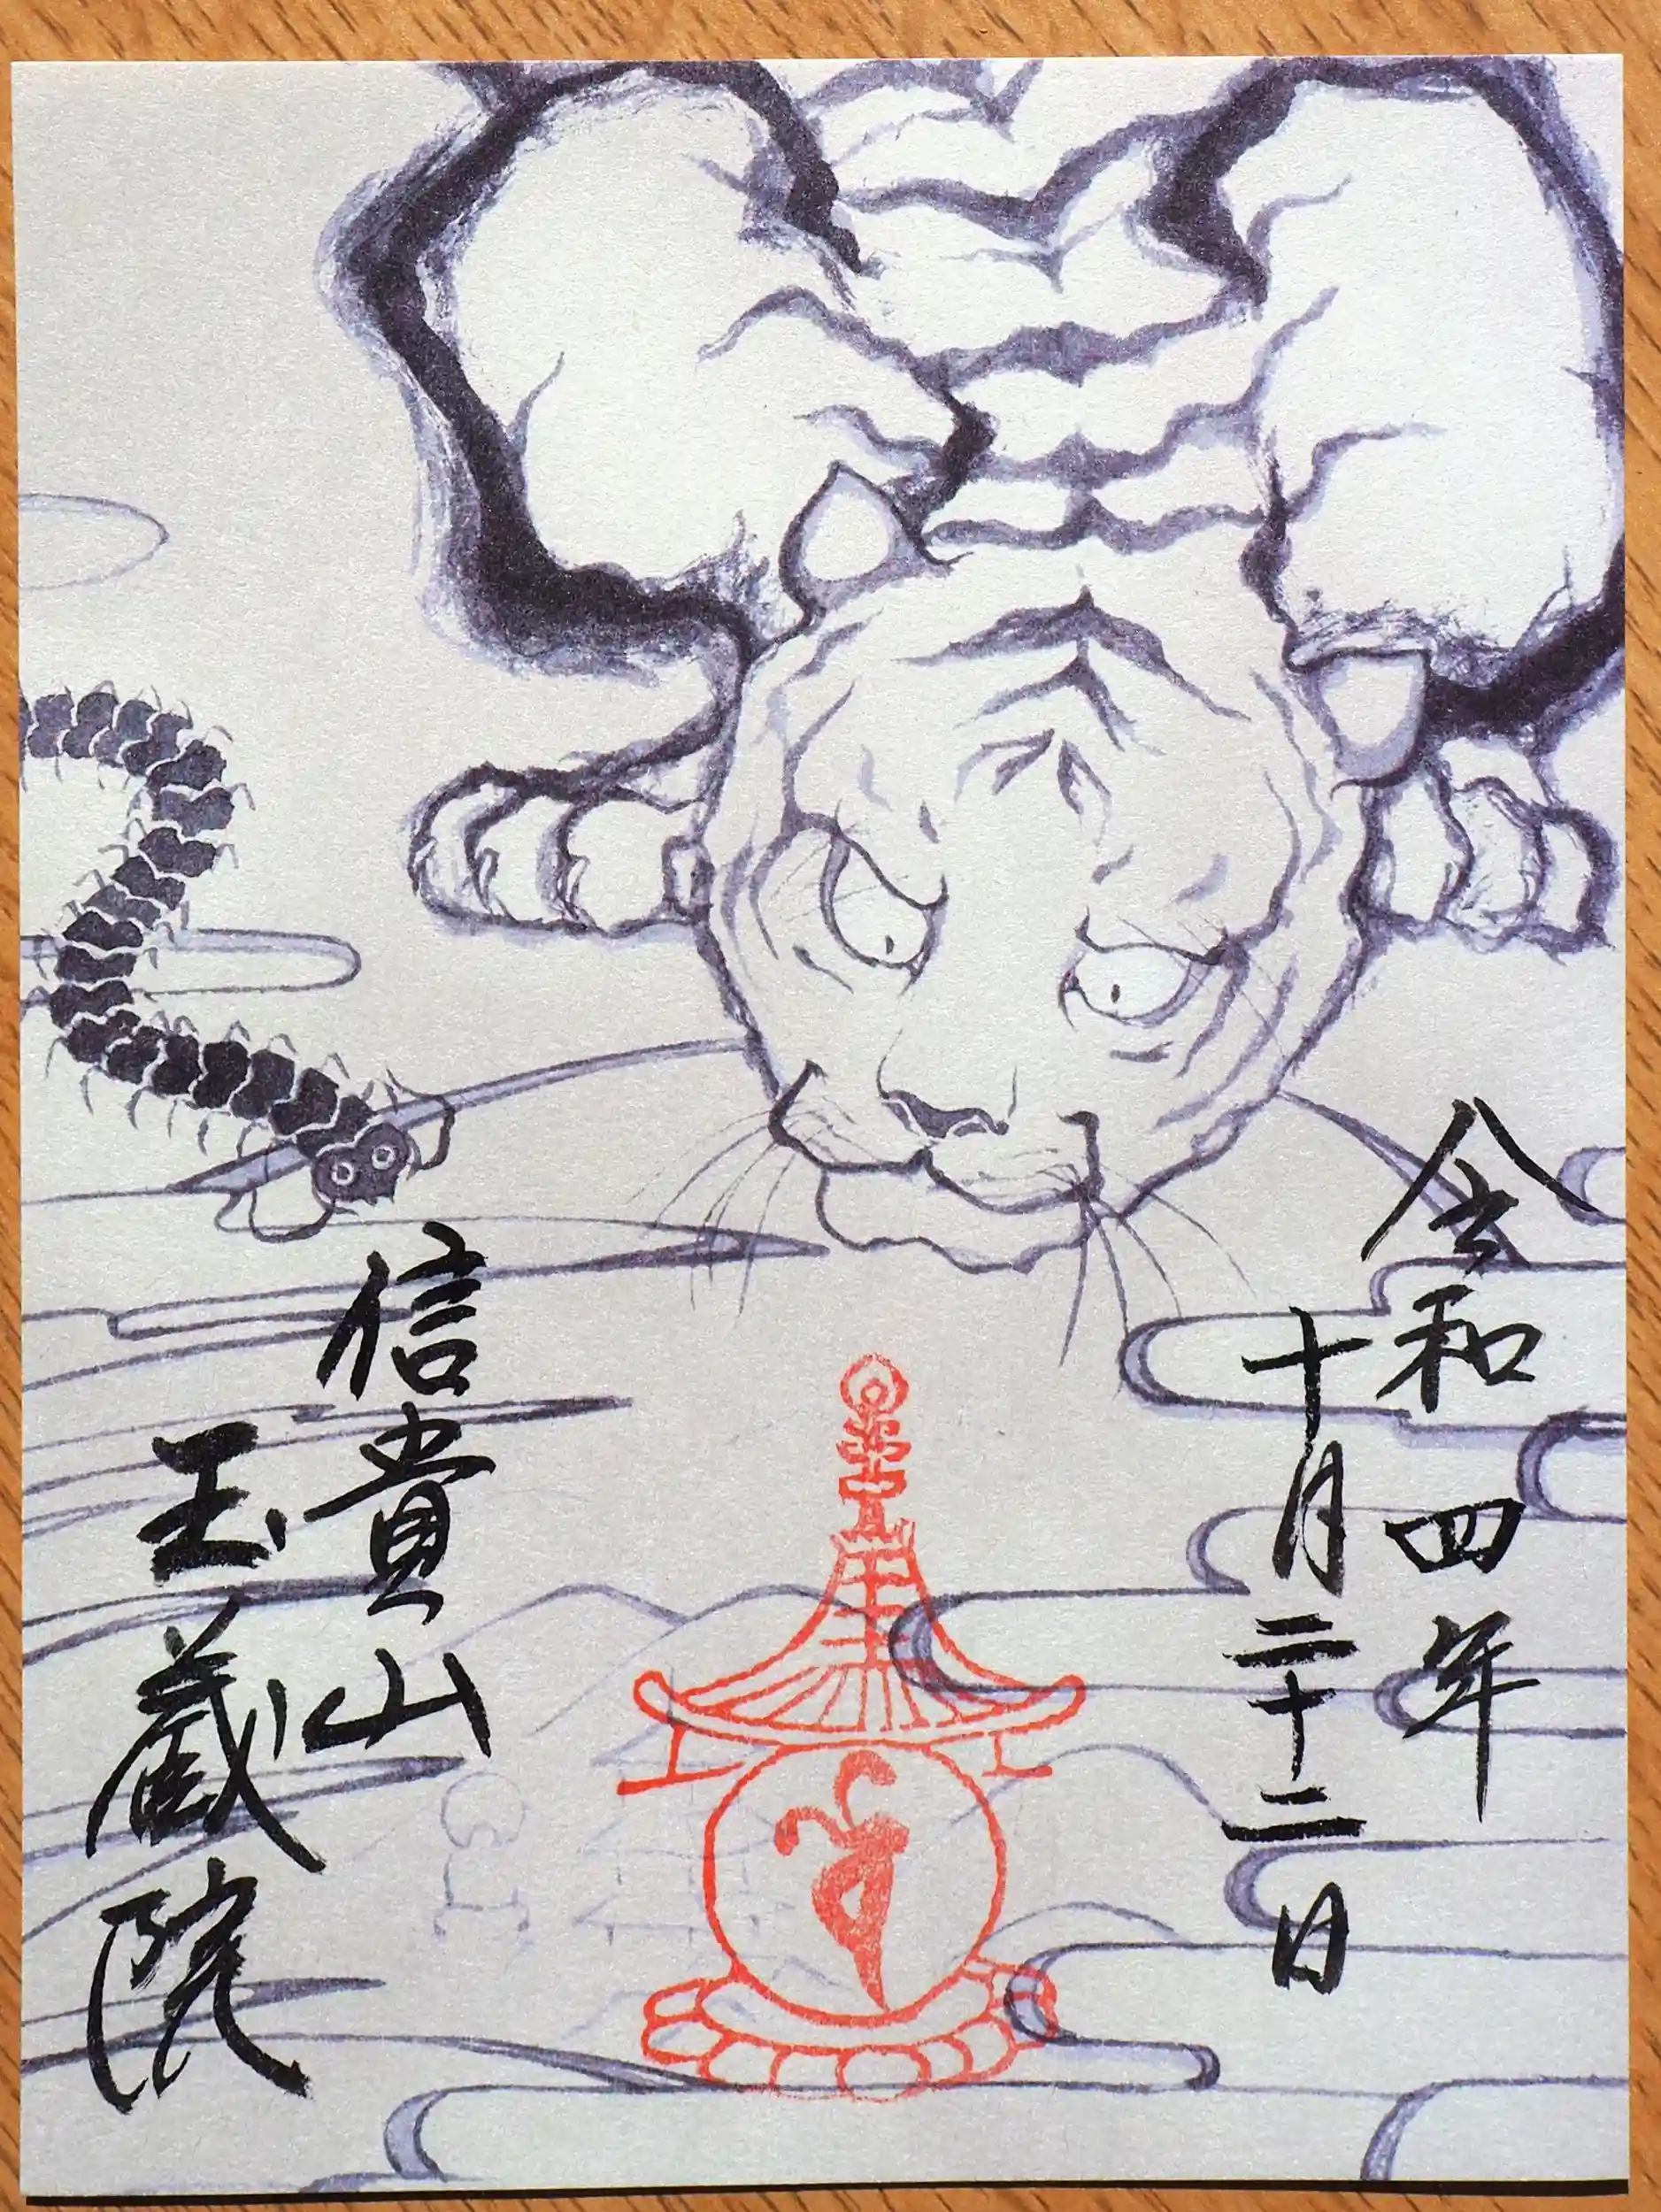 令和四年
十月二十二日
信貴山
玉蔵院